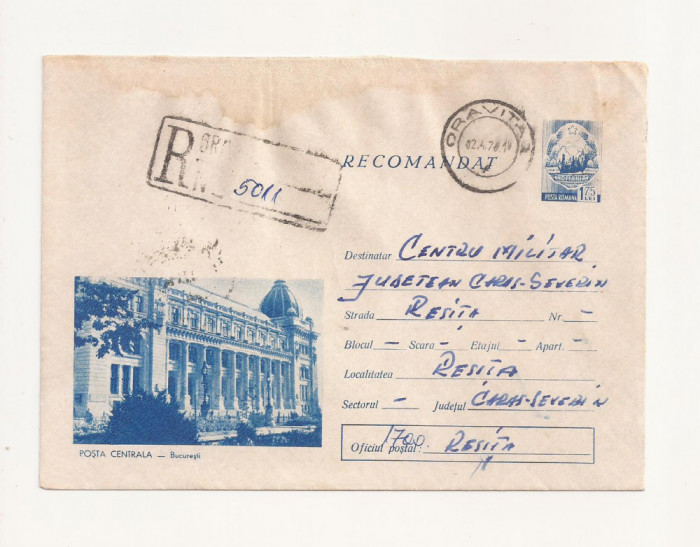 ORAVITA
02.4.78
R OR
N 5011
RECOMANDAT
POSTA ROMANA 1,75
Destinatar CENTRU MILITAR
JUDETEAN CARAS-SEVERIN
Strada RESITA Nr. -
Blocul - Scara - Etajul - Apart. -
Localitatea RESITA
Sectorul - Județul CARAS-SEVERIN
Oficiul poștal: 1700 RESITA
POȘTA CENTRALA — București